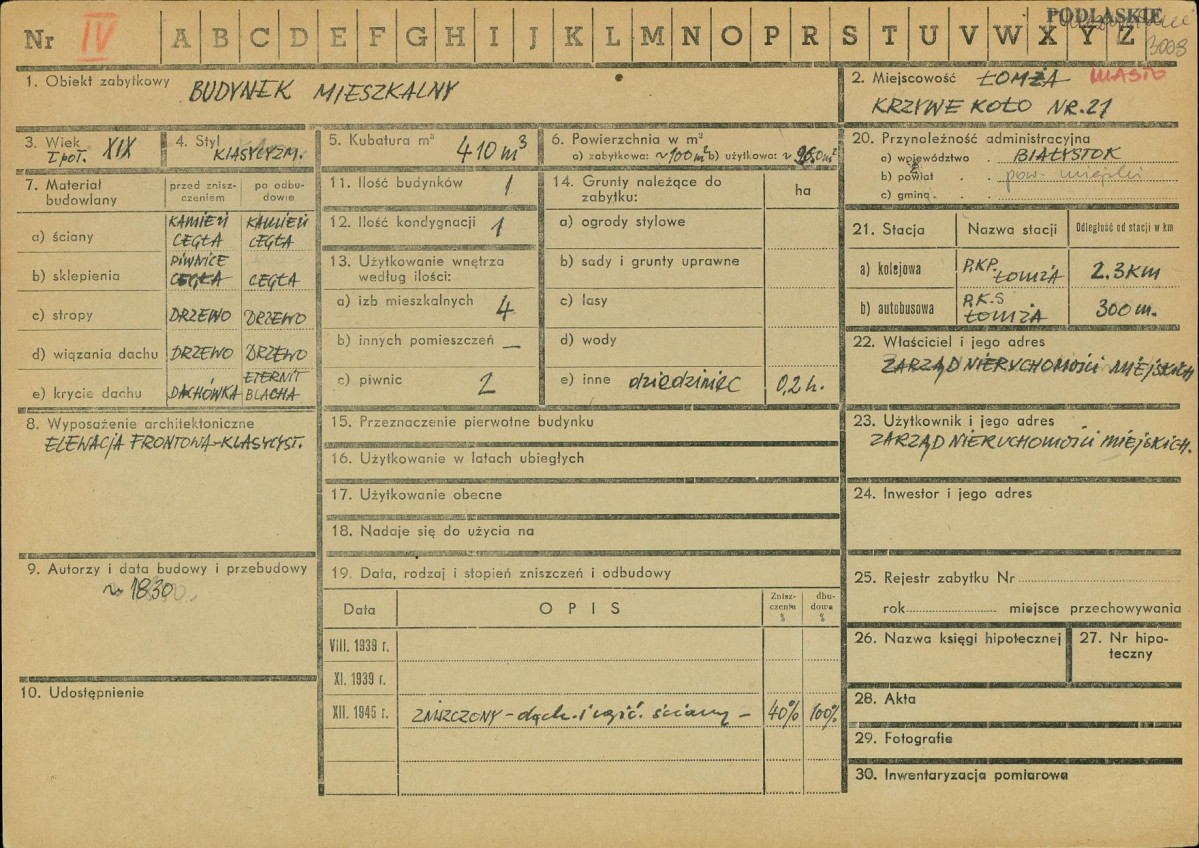 PODLASKIE
3003
Nr IV A B C D E F G H I J K L M N O P R S T U V W X Y Z
1. Obiekt zabytkowy BUDYNEK MIESZKALNY
2. Miejscowość ŁOMŻA MIASTO
KRZYWE KOŁO NR. 21
3. Wiek I poł. XIX
4. Styl KLASYCYZM.
5. Kubatura m³ 410 m³
6. Powierzchnia w m²
a) zabytkowa: ~100 m² b) użytkowa: ~ 96.0 m²
7. Materiał budowlany
przed zniszczeniem
po odbudowie
a) ściany KAMIEŃ CEGŁA KAMIEŃ CEGŁA
b) sklepienia PIWNICE CEGŁA CEGŁA
c) stropy DRZEWO DRZEWO
d) wiązania dachu DRZEWO DRZEWO
e) krycie dachu DACHÓWKA ETERNIT BLACHA
8. Wyposażenie architektoniczne
ELEWACJA FRONTOWA-KLASYCYST.
9. Autorzy i data budowy i przebudowy
~ 1830.
10. Udostępnienie
11. Ilość budynków 1
12. Ilość kondygnacji 1
13. Użytkowanie wnętrza
według ilości:
a) izb mieszkalnych 4
b) innych pomieszczeń —
c) piwnic 2
14. Grunty należące do
zabytku:
ha
a) ogrody stylowe
b) sady i grunty uprawne
c) lasy
d) wody
e) inne dziedziniec 0,2 h.
15. Przeznaczenie pierwotne budynku
16. Użytkowanie w latach ubiegłych
17. Użytkowanie obecne
18. Nadaje się do użycia na
19. Data, rodzaj i stopień zniszczeń i odbudowy
Data OPIS Zniszczenia % dbudowa %
VIII. 1939 r.
XI. 1939 r.
XII. 1945 r. ZNISZCZONY - dach. i część. ściany - 40% 100%
20. Przynależność administracyjna
a) województwo BIAŁYSTOK
b) powiat pow. miejski
c) gmina
21. Stacja Nazwa stacji Odległość od stacji w km
a) kolejowa P.K.P. ŁOMŻA 2.3 KM
b) autobusowa P.K.S ŁOMŻA 300 m.
22. Właściciel i jego adres
ZARZĄD NIERUCHOMOŚCI MIEJSKICH
23. Użytkownik i jego adres
ZARZĄD NIERUCHOMOŚCI MIEJSKICH.
24. Inwestor i jego adres
25. Rejestr zabytku Nr
rok miejsce przechowywania
26. Nazwa księgi hipotecznej
27. Nr hipoteczny
28. Akta
29. Fotografie
30. Inwentaryzacja pomiarowa